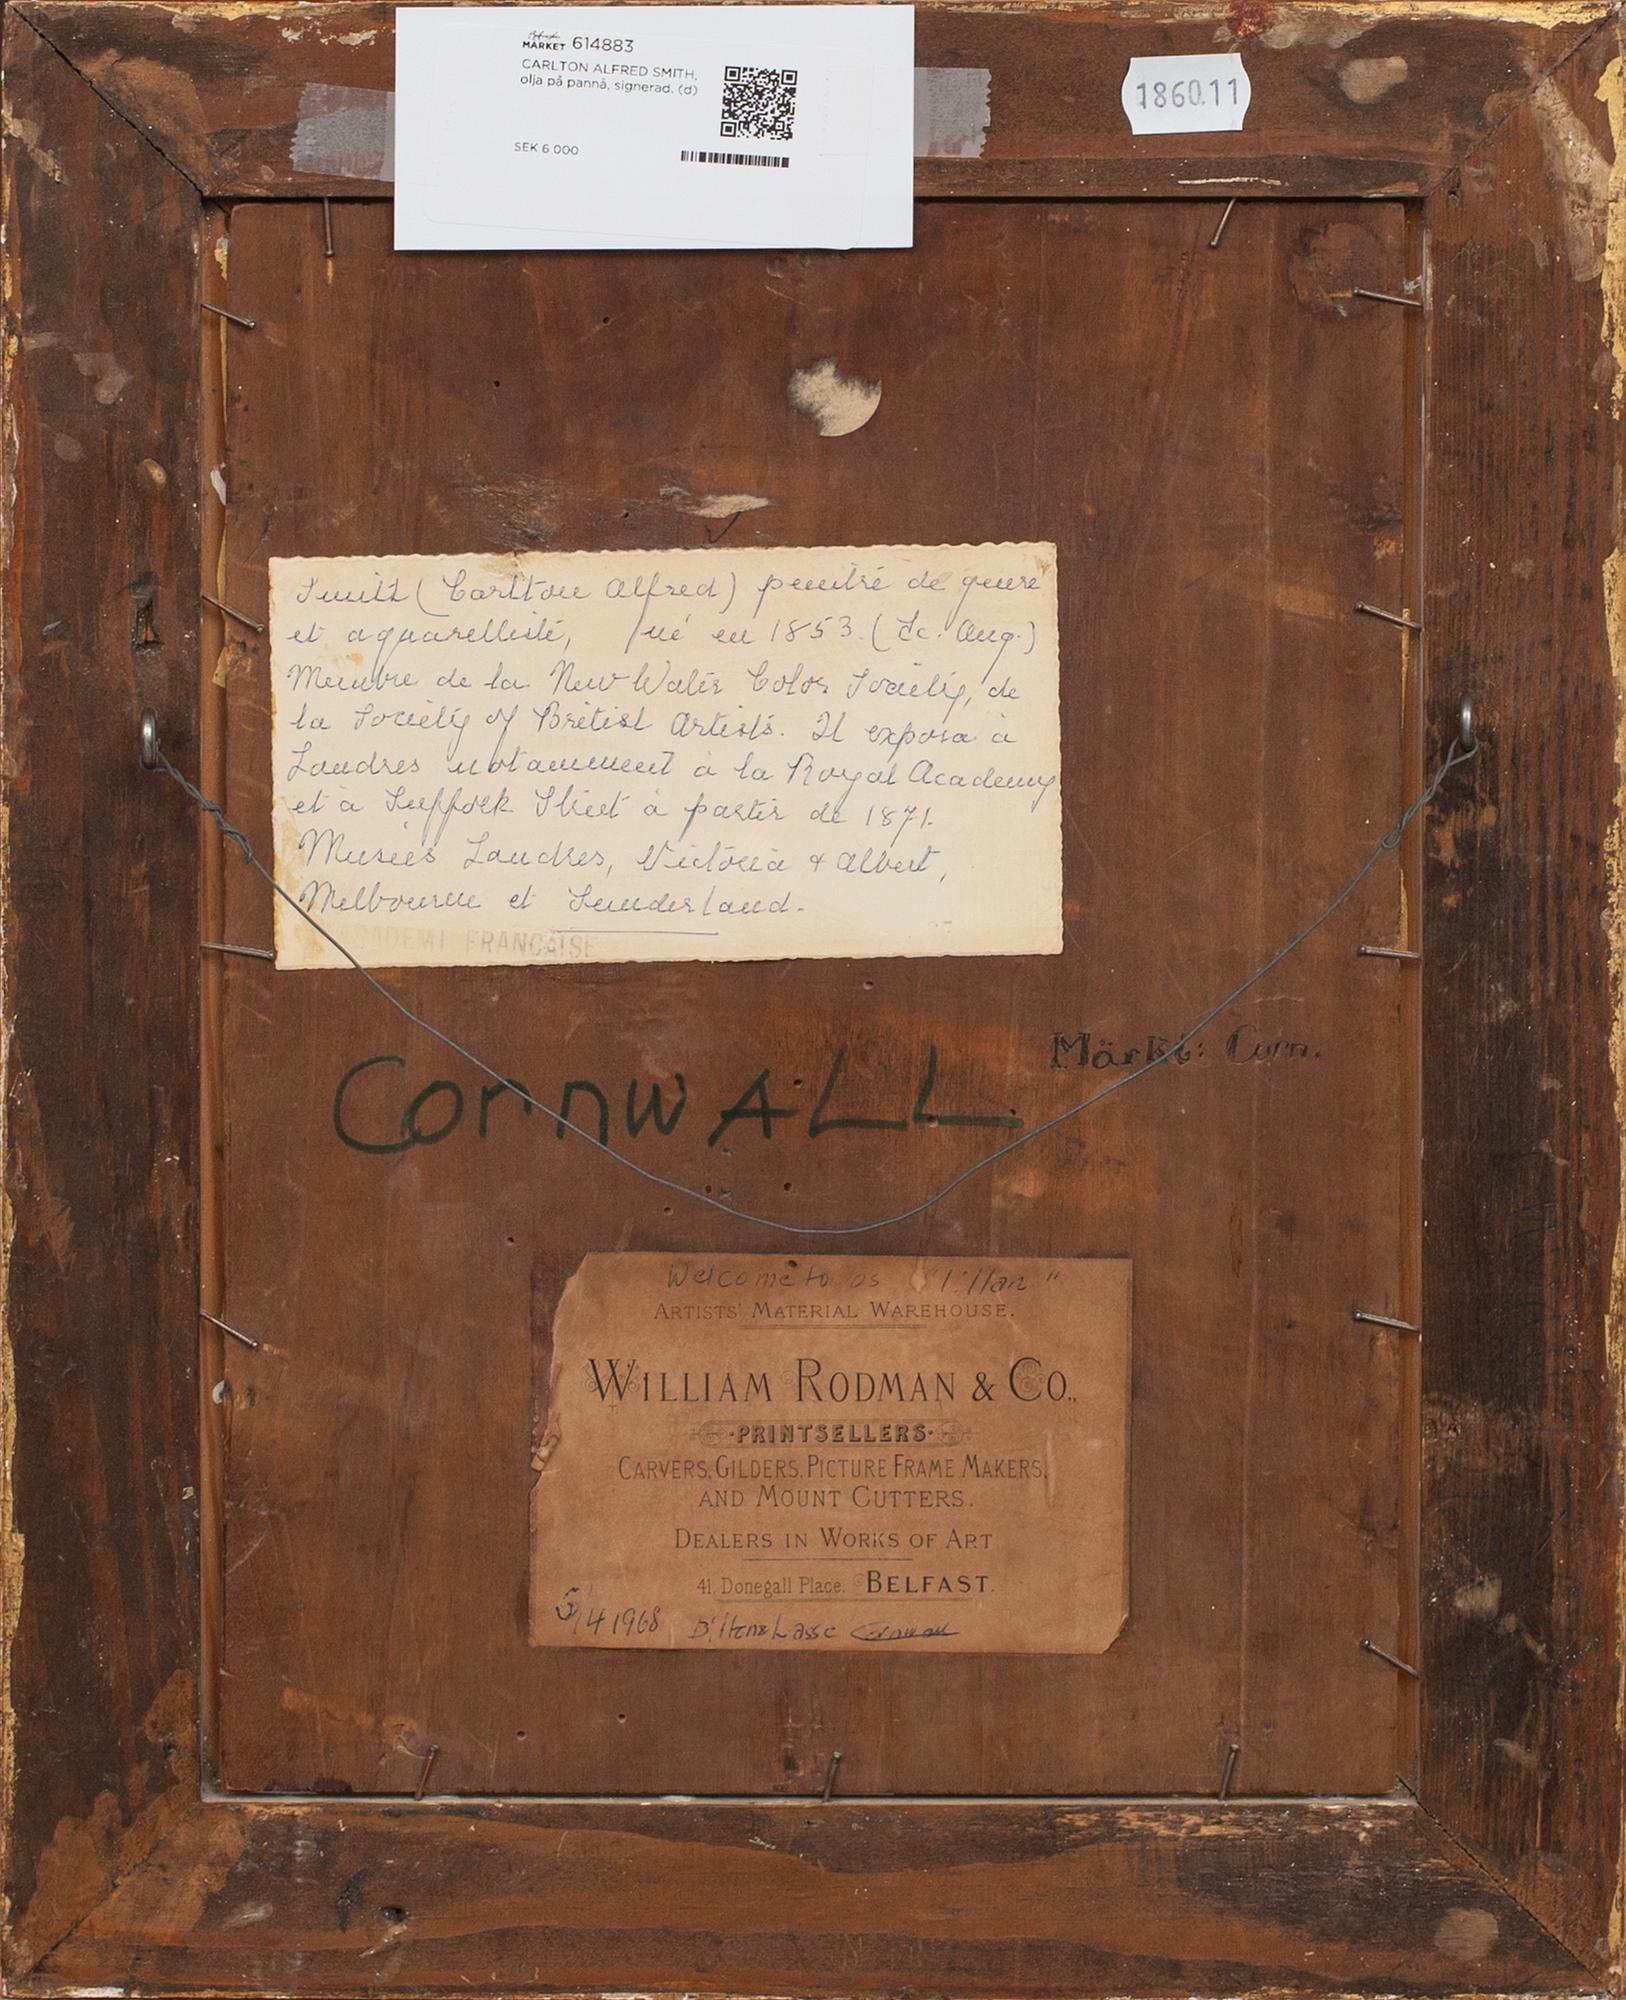 MARKET 614883
CARLTON ALFRED SMITH,
olja på pannå, signerad. (d)
SEK 6 000
1860.11
Smith (Carlton Alfred) peintre de genre
et aquarelliste, né en 1853. (Ec. Ang.)
Membre de la New Water Color Society, de
la Society of British Artists. Il exposa à
Londres notamment à la Royal Academy
et à Suffolk Street à partir de 1871.
Musées Londres, Victoria & Albert,
Melbourne et Sunderland.
ADEMI FRANCAISE
Märkt: Corn.
CornwALL
Welcome to os
ARTISTS' MATERIAL WAREHOUSE.
WILLIAM RODMAN & CO.,
PRINTSELLERS
CARVERS, GILDERS, PICTURE FRAME MAKERS,
AND MOUNT CUTTERS.
DEALERS IN WORKS OF ART
41, Donegall Place. BELFAST.
5/4 1968 Lasse